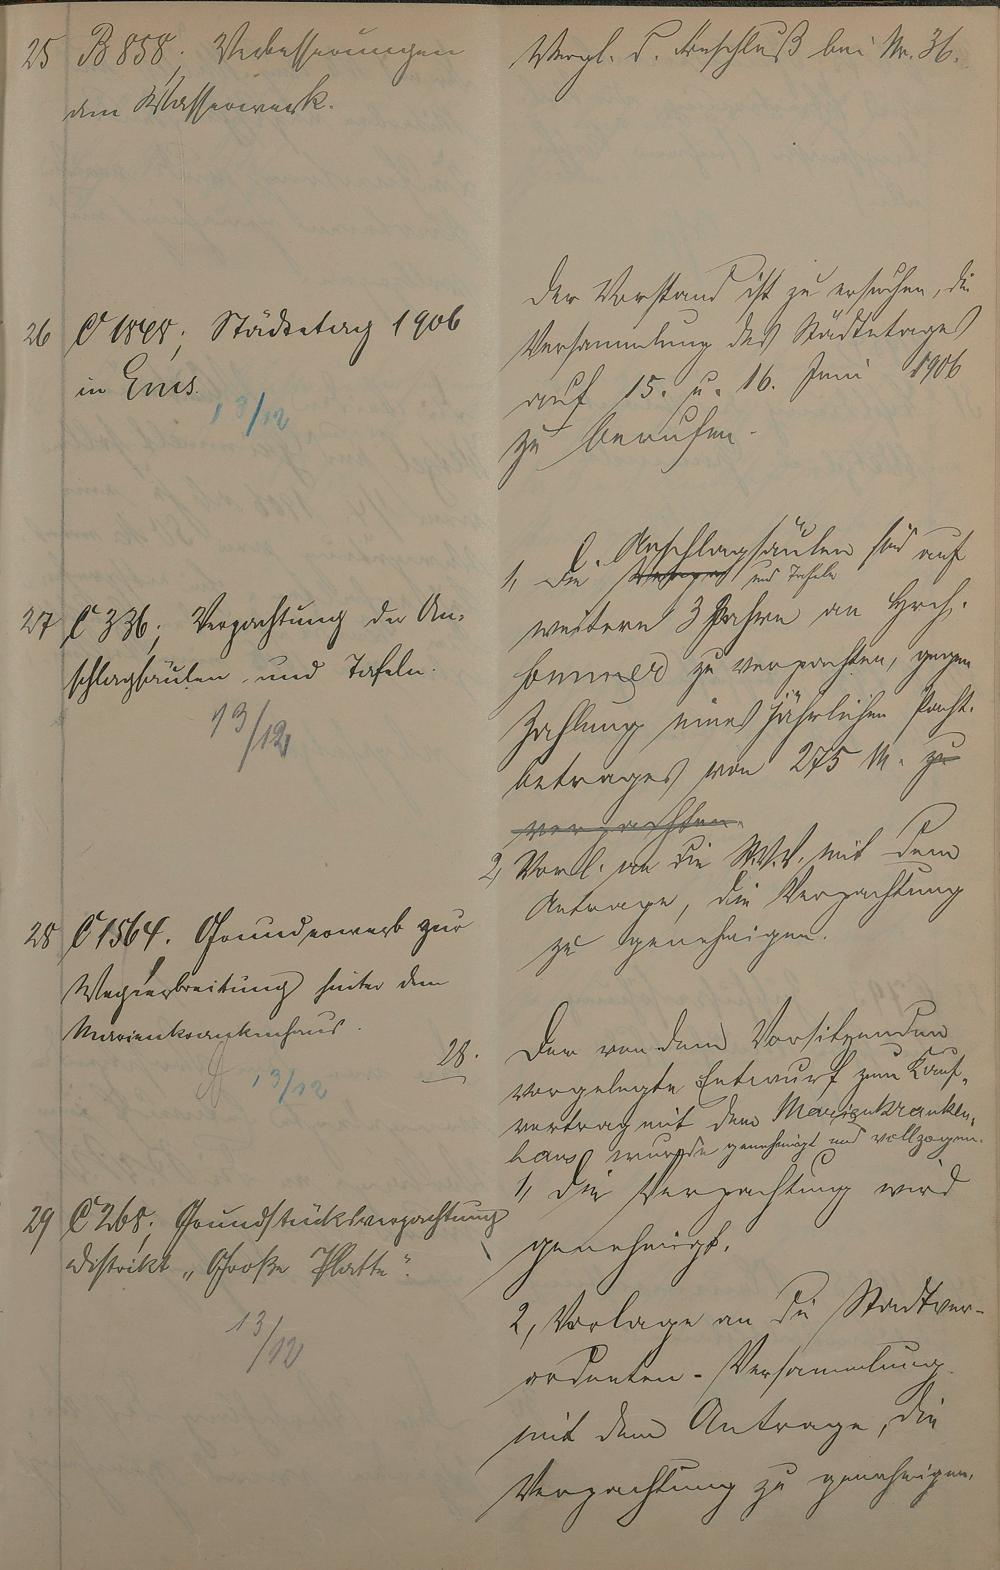 25 B 858. Verbesserungen
am Wasserwerk.
Vergl. d. Beschluß bei Nr. 36.
26 C 1848; Städtetag 1906
in Ems.
13/12
Der Vorstand ist zu ersuchen, die
Versammlung des Städtetages
auf 15. u. 16. Juni 1906
zu berufen.
27 C 336; Verpachtung der An-
schlagsäulen und Tafeln.
13/12
1, Die Anschlagsäulen sind auf
und Tafeln
weitere 3 Jahre an Hrch.
Sommer zu verpachten, gegen
Zahlung eines jährlichen Pacht-
betrages von 275 M. zu
verpachten.
2, Vorl. an die St.V.V. mit dem
Antrage, die Verpachtung
zu genehmigen.
28 C 1564. Grunderwerb zur
Wegverbreitung hinter dem
Marienkrankenhaus.
13/12
28. Der von dem Vorsitzenden
vorgelegte Entwurf zum Kauf-
vertrag mit dem Marienkranken-
haus wurde genehmigt und vollzogen.
29 C 268; Grundstücksverpachtung
Distrikt „Große Platte".
13/12
1, Die Verpachtung wird
genehmigt.
2, Vorlage an die Stadtver-
ordneten-Versammlung
mit dem Antrage, die
Verpachtung zu genehmigen.